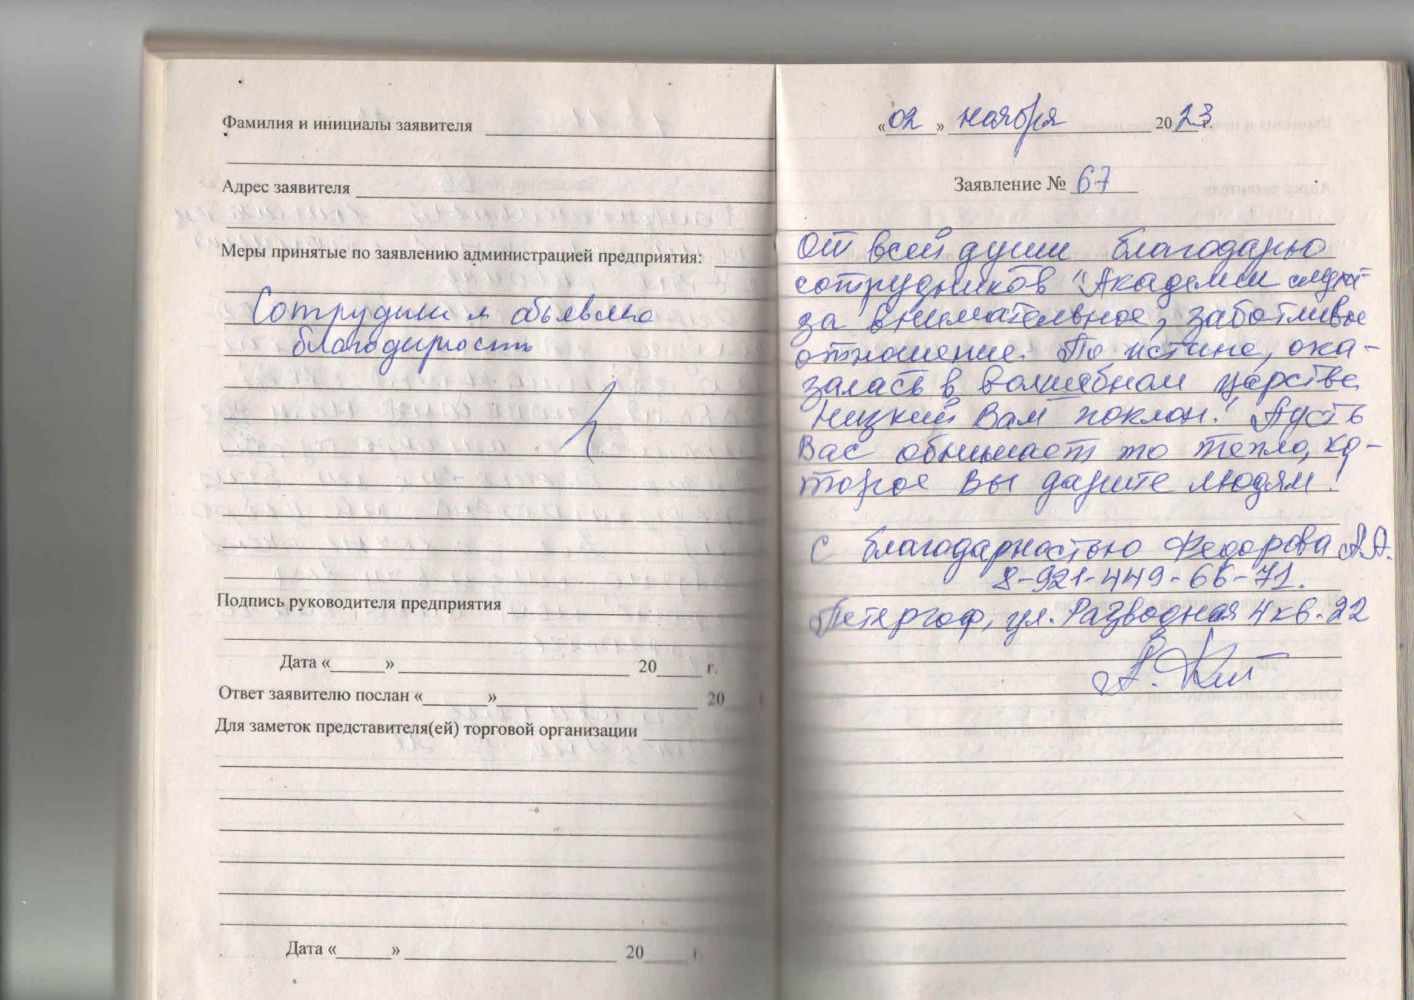 Фамилия и инициалы заявителя
Адрес заявителя
Меры принятые по заявлению администрацией предприятия:
Сотрудникам объявлена
благодарность
Подпись руководителя предприятия
Дата «   » 20   г.
Ответ заявителю послан «   » 20
Для заметок представителя(ей) торговой организации
Дата «   » 20   г.
«02» ноября 2023 г.
Заявление № 67
От всей души благодарю
сотрудников "Академии слуха"
за внимательное, заботливое
отношение. По истине, ока-
залась в волшебном царстве.
Низкий Вам поклон! Пусть
Вас обнимает то тепло, ко-
торое Вы дарите людям!
С благодарностью Федорова А.А.
8-921-449-66-71.
Петергоф, ул. Разводная 4 кв. 22